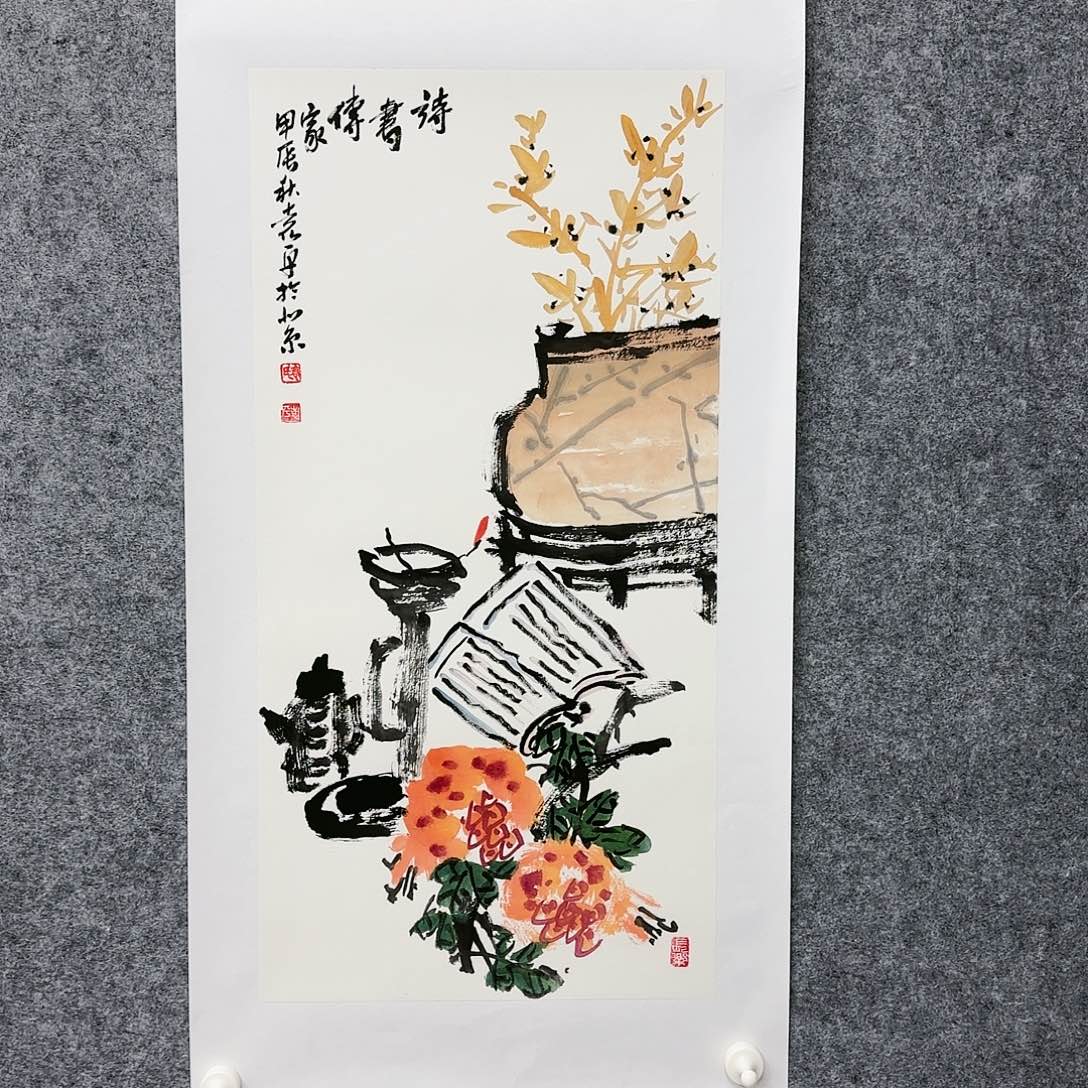 詩書傳家
甲辰秋於北京
長樂